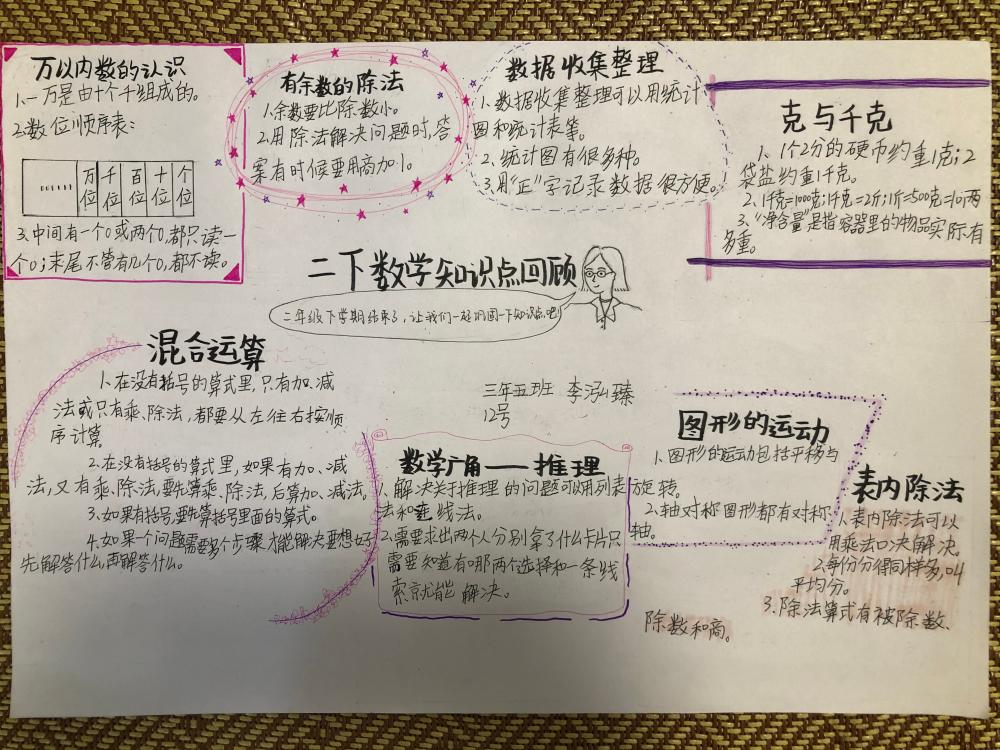 万以内数的认识
1、一万是由十个千组成的。
2、数位顺序表:
…… 万位 千位 百位 十位 个位
3、中间有一个0或两个0,都只读一
个0;末尾不管有几个0,都不读。
有余数的除法
1、余数要比除数小。
2、用除法解决问题时,答
案有时候要用商加1。
数据收集整理
1、数据收集整理可以用统计
图和统计表等。
2、统计图有很多种。
3、用“正”字记录数据很方便。
克与千克
1、1个2分的硬币约重1克;2
袋盐约重1千克。
2、1千克=1000克;1千克=2斤;1斤=500克=10两
3、“净含量”是指容器里的物品实际有
多重。
二下数学知识点回顾
二年级下学期结束了,让我们一起巩固一下知识点吧!
混合运算
1、在没有括号的算式里,只有加、减
法或只有乘、除法,都要从左往右按顺
序计算。
2、在没有括号的算式里,如果有加、减
法,又有乘、除法,要先算乘、除法,后算加、减法。
3、如果有括号,要先算括号里面的算式。
4、如果一个问题需要多个步骤才能解决要想好
先解答什么再解答什么。
三年五班 李泓臻
12号
数学广角——推理
1、解决关于推理的问题可以用列表
法和连线法。
2、需要求出两个人分别拿了什么卡片只
需要知道有哪两个选择和一条线
索就能解决。
图形的运动
1、图形的运动包括平移与
旋转。
2、轴对称图形都有对称
轴。
表内除法
1、表内除法可以
用乘法口决解决。
2、每份分得同样多,叫
平均分。
3、除法算式有被除数、
除数和商。